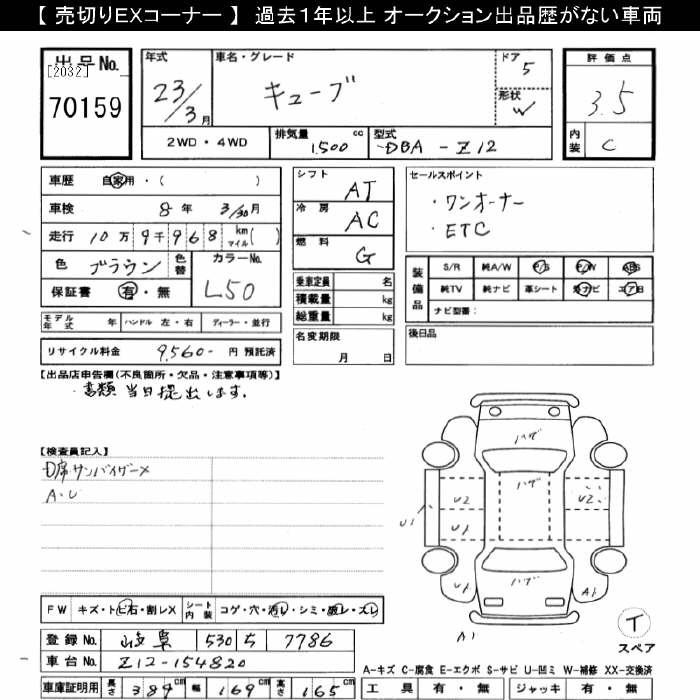 【 売切りEXコーナー 】 過去1年以上 オークション出品歴がない車両
出品No.
[2032]
70159
年式
23/3月
車名・グレード
キューブ
ドア
5
形状
W
評価点
3.5
内装
C
2WD・4WD
排気量
1,500 cc
型式
DBA-Z12
車歴 自家用・( )
車検 8年 3/30月
走行 10万9千968 km マイル( )
色 ブラウン 色替
カラーNo.
L50
保証書 有・無
シフト
AT
冷房
AC
燃料
G
セールスポイント
・ワンオーナー
・ETC
乗車定員 名
積載量 kg
総重量 kg
装備品
S/R 純A/W P/S P/W ABS
純TV 純ナビ 革シート 社ナビ エアB
ナビ型番:
モデル年式 年 ハンドル 左・右 ディーラー・並行
名変期限
月 日
後日品
リサイクル料金 9,560- 円 預託済
【出品店申告欄(不良箇所・欠品・注意事項等)】
・書類 当日提出します。
【検査員記入】
D席サンバイザー×
A・U
ハザ
ハザ
U2
U2
U1
U1
ハザ
U1
A1
A1
FW キズ・トビ石・割レX
シート内装 コゲ・穴・汚レ・シミ・破レ・スレ
T
スペア
登録No. 岐阜 530 ち 7786
車台No. Z12-154820
A-キズ C-腐食 E-エクボ S-サビ U-凹ミ W-補修 XX-交換済
車庫証明用 長さ 389cm 幅 169cm 高さ 165cm
工具 有・無 ジャッキ 有・無